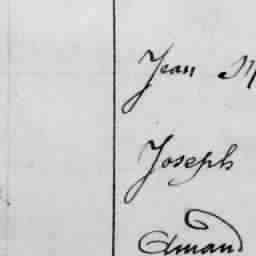 Jean M
Joseph
Amand